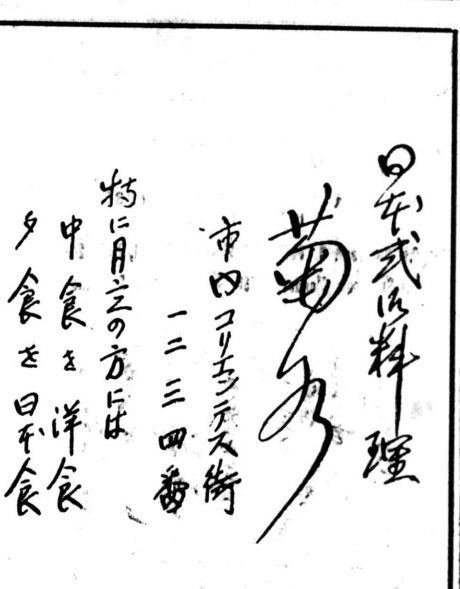 日本式御料理
菊水
市内コリエンテス街
一二三四番
特に月ぎめの方には
中食を 洋食
夕食を 日本食